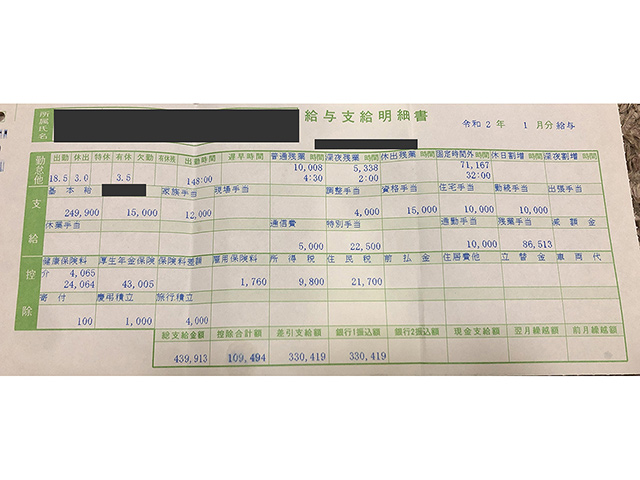 所属
氏名
給与支給明細書
令和2年 1月分給与
勤怠他 出勤 休出 特休 有休 欠勤 有休残 出勤時間 遅早時間 普通残業 時間 深夜残業 時間 休出残業 時間 固定時間外 時間 休日割増 時間 深夜割増 時間
10,008 5,338 71,167
18.5 3.0 3.5 148:00 4:30 2:00 32:00
支給 基本給 家族手当 現場手当 調整手当 資格手当 住宅手当 勤続手当 出張手当
249,900 15,000 12,000 4,000 15,000 10,000 10,000
休業手当 通信費 特別手当 通勤手当 残業手当 減額金
5,000 22,500 10,000 86,513
控除 健康保険料 厚生年金保険 保険料差額 雇用保険料 所得税 住民税 前払金 住居費他 立替金 車両代
介 4,065
24,064 43,005 1,760 9,800 21,700
寄付 慶弔積立 旅行積立
100 1,000 4,000
総支給金額 控除合計額 差引支給額 銀行1振込額 銀行2振込額 現金支給額 翌月繰越額 前月繰越額
439,913 109,494 330,419 330,419